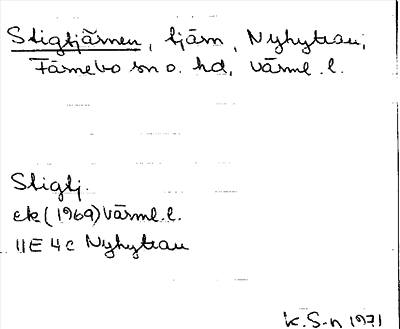 Stigtjärnen, tjärn, Nyhyttan,
Färnebo sn o. hd, Värml. l.
Stigtj.
ek (1969) Värml. l.
11E 4c Nyhyttan
K. S-n 1971